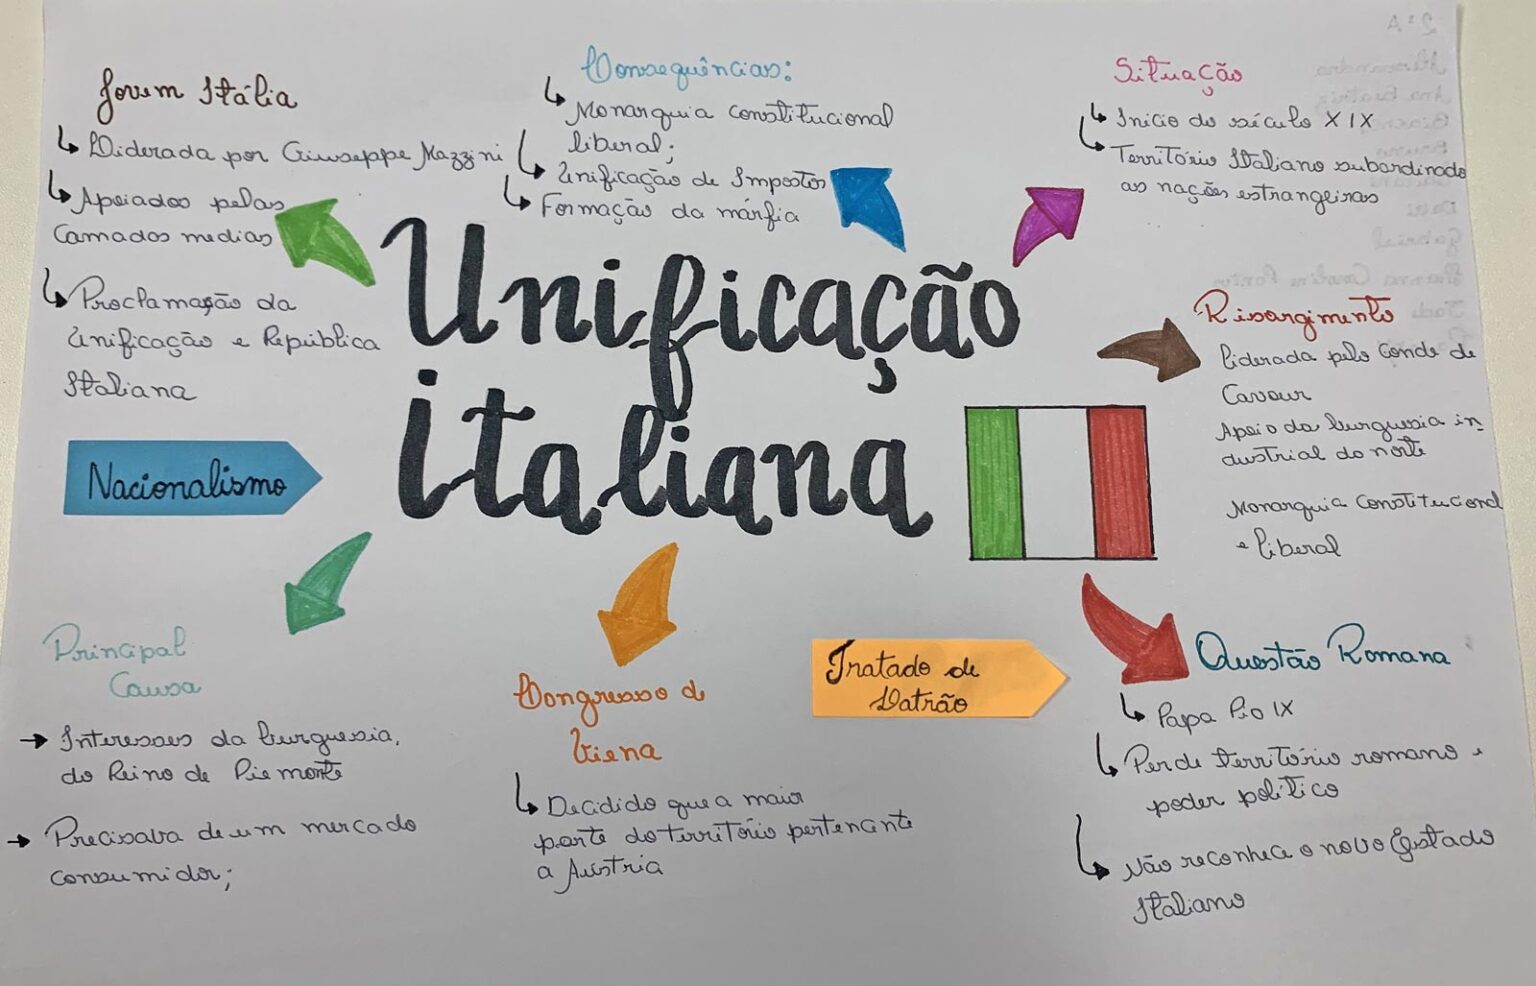 Jovem Itália
Liderada por Giuseppe Mazzini
Apoiados pelas
Camadas medias
Proclamação da
Unificação e República
Italiana
Consequências:
Monarquia constitucional
liberal;
Unificação de Impostos
Formação da márfia
Situação
Início do século XIX
Território Italiano subordinado
as nações estrangeiras
Unificação
Italiana
Risorgimento
liderada pelo Conde de
Cavour
Apoio da burguesia in_
dustrial do norte
Monarquia Constitucional
e liberal
Nacionalismo
Principal
Causa
Interesses da burguesia,
do Reino de Piemonte
Precisava de um mercado
consumidor;
Congresso d
Viena
Decidido que a maior
parte do território pertencente
a Áustria
Tratado de
Latrão
Questão Romana
Papa Pio IX
Perde território romano e
poder político
Não reconhece o novo Estado
Italiano
2º A
Alessandra
Ana Beatriz
Bruno
Gabriel